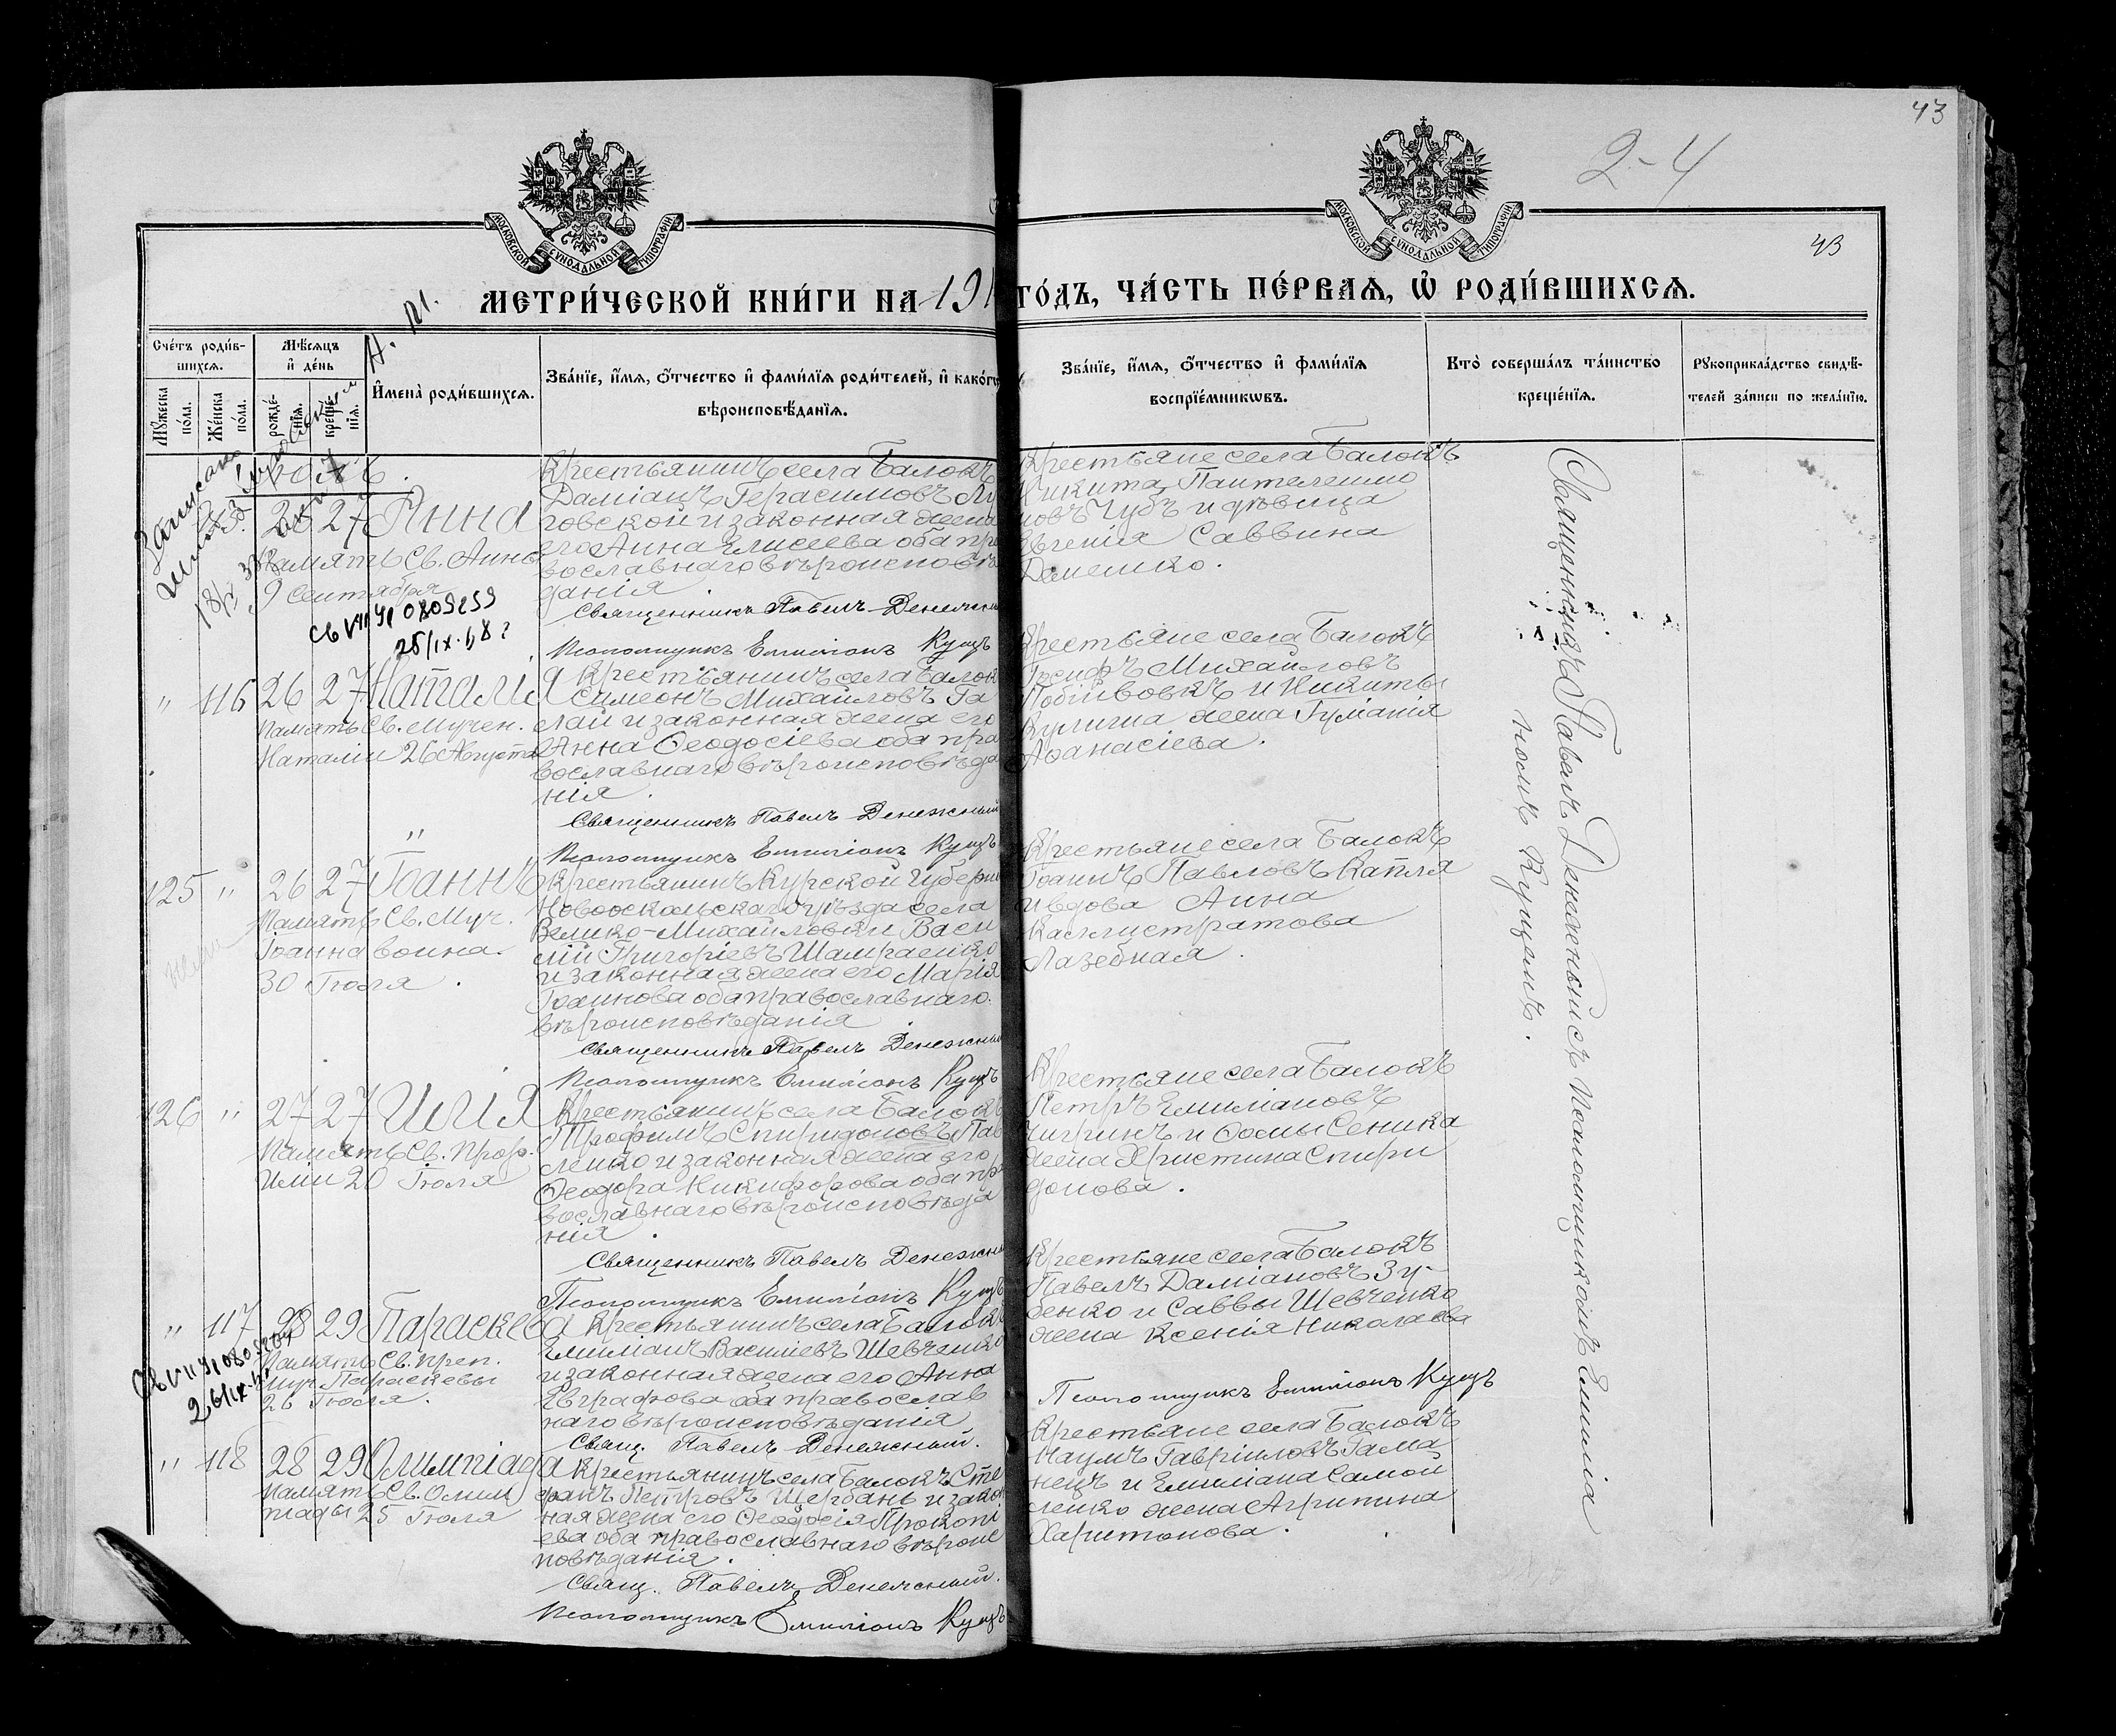 43
2-4
МОСКОВСКОЙ СУНОДАЛЬНОЙ ТИПОГРАФІИ
МОСКОВСКОЙ СУНОДАЛЬНОЙ ТИПОГРАФІИ
43
МЕТРИ́ЧЕСКОЙ КНИ́ГИ НА 191
ГО́ДЪ, ЧА́СТЬ ПЕ́РВАѦ, Ѡ҆ РОДИ́ВШИХСѦ.
Сче́тъ роди́в-
шихсѧ.
Мꙋжеска по́ла.
Же́нска по́ла.
Мѣ́сѧцъ
и҆ де́нь
рожде́-
нїѧ.
креще́-
нїѧ.
И҆мена̀ роди́вшихсѧ.
Зва́нїе, и҆́мѧ, ѻ҆́тчество и҆ фами́лїѧ роди́телей, и҆ како́гѡ
вѣроисповѣ́данїѧ.
Зва́нїе, и҆́мѧ, ѻ҆́тчество и҆ фами́лїѧ
воспрїе́мникѡвъ.
Кто̀ соверша́лъ та́инство
креще́нїѧ.
Рꙋкоприкла́дство свидѣ́-
телей за́писи по жела́нїю.
26 27 Анна
Память Св. Анны
9 Сентября
25/IX
Крестьянинъ села Балокъ
Даміанъ Герасимовъ
говской и законная жена
его Анна Елисеева оба пра
вославнаго вѣроисповѣ
данія
Священникъ Павелъ Денежный
Псаломщикъ Емиліонъ Куцъ
Крестьяне села Балокъ
Никита Пантелеимо
новъ Чубъ и дѣвица
Евгенія Саввина
Демешко.
" 116 26 27 Наталія
Память Св. Мучен.
Наталіи 26 Августа
Крестьянинъ села Балокъ
Симеонъ Михайловъ Га
лай и законная жена его
Анна Ѳеодосіева оба пра
вославнаго вѣроисповѣда
нія.
Священникъ Павелъ Денежный
Псаломщикъ Емиліонъ Куцъ
Крестьяне села Балокъ
Іосифъ Михайловъ
и Никиты
жена Іуліанія
Аѳанасіева.
125 " 26 27 Іоаннъ
Память Св. Муч.
Іоанна воина.
30 Іюля.
Крестьянинъ Курской губерніи
Новооскольскаго уѣзда села
Велико-Михайловки Васи
лій Григоріевъ Шамраенко
и законная жена его Марія
Іоаннова оба православнаго
вѣроисповѣданія
Священникъ Павелъ Денежный
Псаломщикъ Емиліонъ Куцъ
Крестьяне села Балокъ
Іоаннъ Павловъ Капля
и вдова Анна
Каллистратова
Лазебная.
126 " 27 27 Илія
Память Св. Прор.
Иліи 20 Іюля
Крестьянинъ села Балокъ
Трофимъ Спиридоновъ Пав
ленко и законная жена его
Ѳеодора Никифорова оба пра
вославнаго вѣроисповѣда
нія.
Священникъ Павелъ Денежный
Псаломщикъ Емиліонъ Куцъ
Крестьяне села Балокъ
Петръ Емиліановъ
Чигринъ и Ѳомы Сеника
жена Христина Спири
донова.
" 117 28 29 Параскева
Память Св. преп.
муч. Параскевы
26 Іюля.
Крестьянинъ села Балокъ
Емиліанъ Василіевъ Шевченко
и законная жена его Анна
Евграфова оба православ
наго вѣроисповѣданія
Свящ. Павелъ Денежный.
Крестьяне села Балокъ
Павелъ Даміановъ Зу-
бенко и Саввы Шевченко
жена Ксенія Николаева
Псаломщикъ Емиліонъ Куцъ
" 118 28 29 Олимпіада
Память Св. Олим
піады 25 Іюля
Крестьянинъ села Балокъ Сте
фанъ Петровъ Щербань и закон
ная жена его Ѳеодосія Прокопі
ева оба православнаго вѣроис
повѣданія.
Свящ. Павелъ Денежный.
Псаломщикъ Емиліонъ Куцъ
Крестьяне села Балокъ
Наумъ Гавріиловъ Гама
нецъ и Емиліана Самой
ленко жена Агрипина
Харитонова.
Священникъ Павелъ Денежный съ псаломщикомъ Емиліа
номъ Куцомъ.